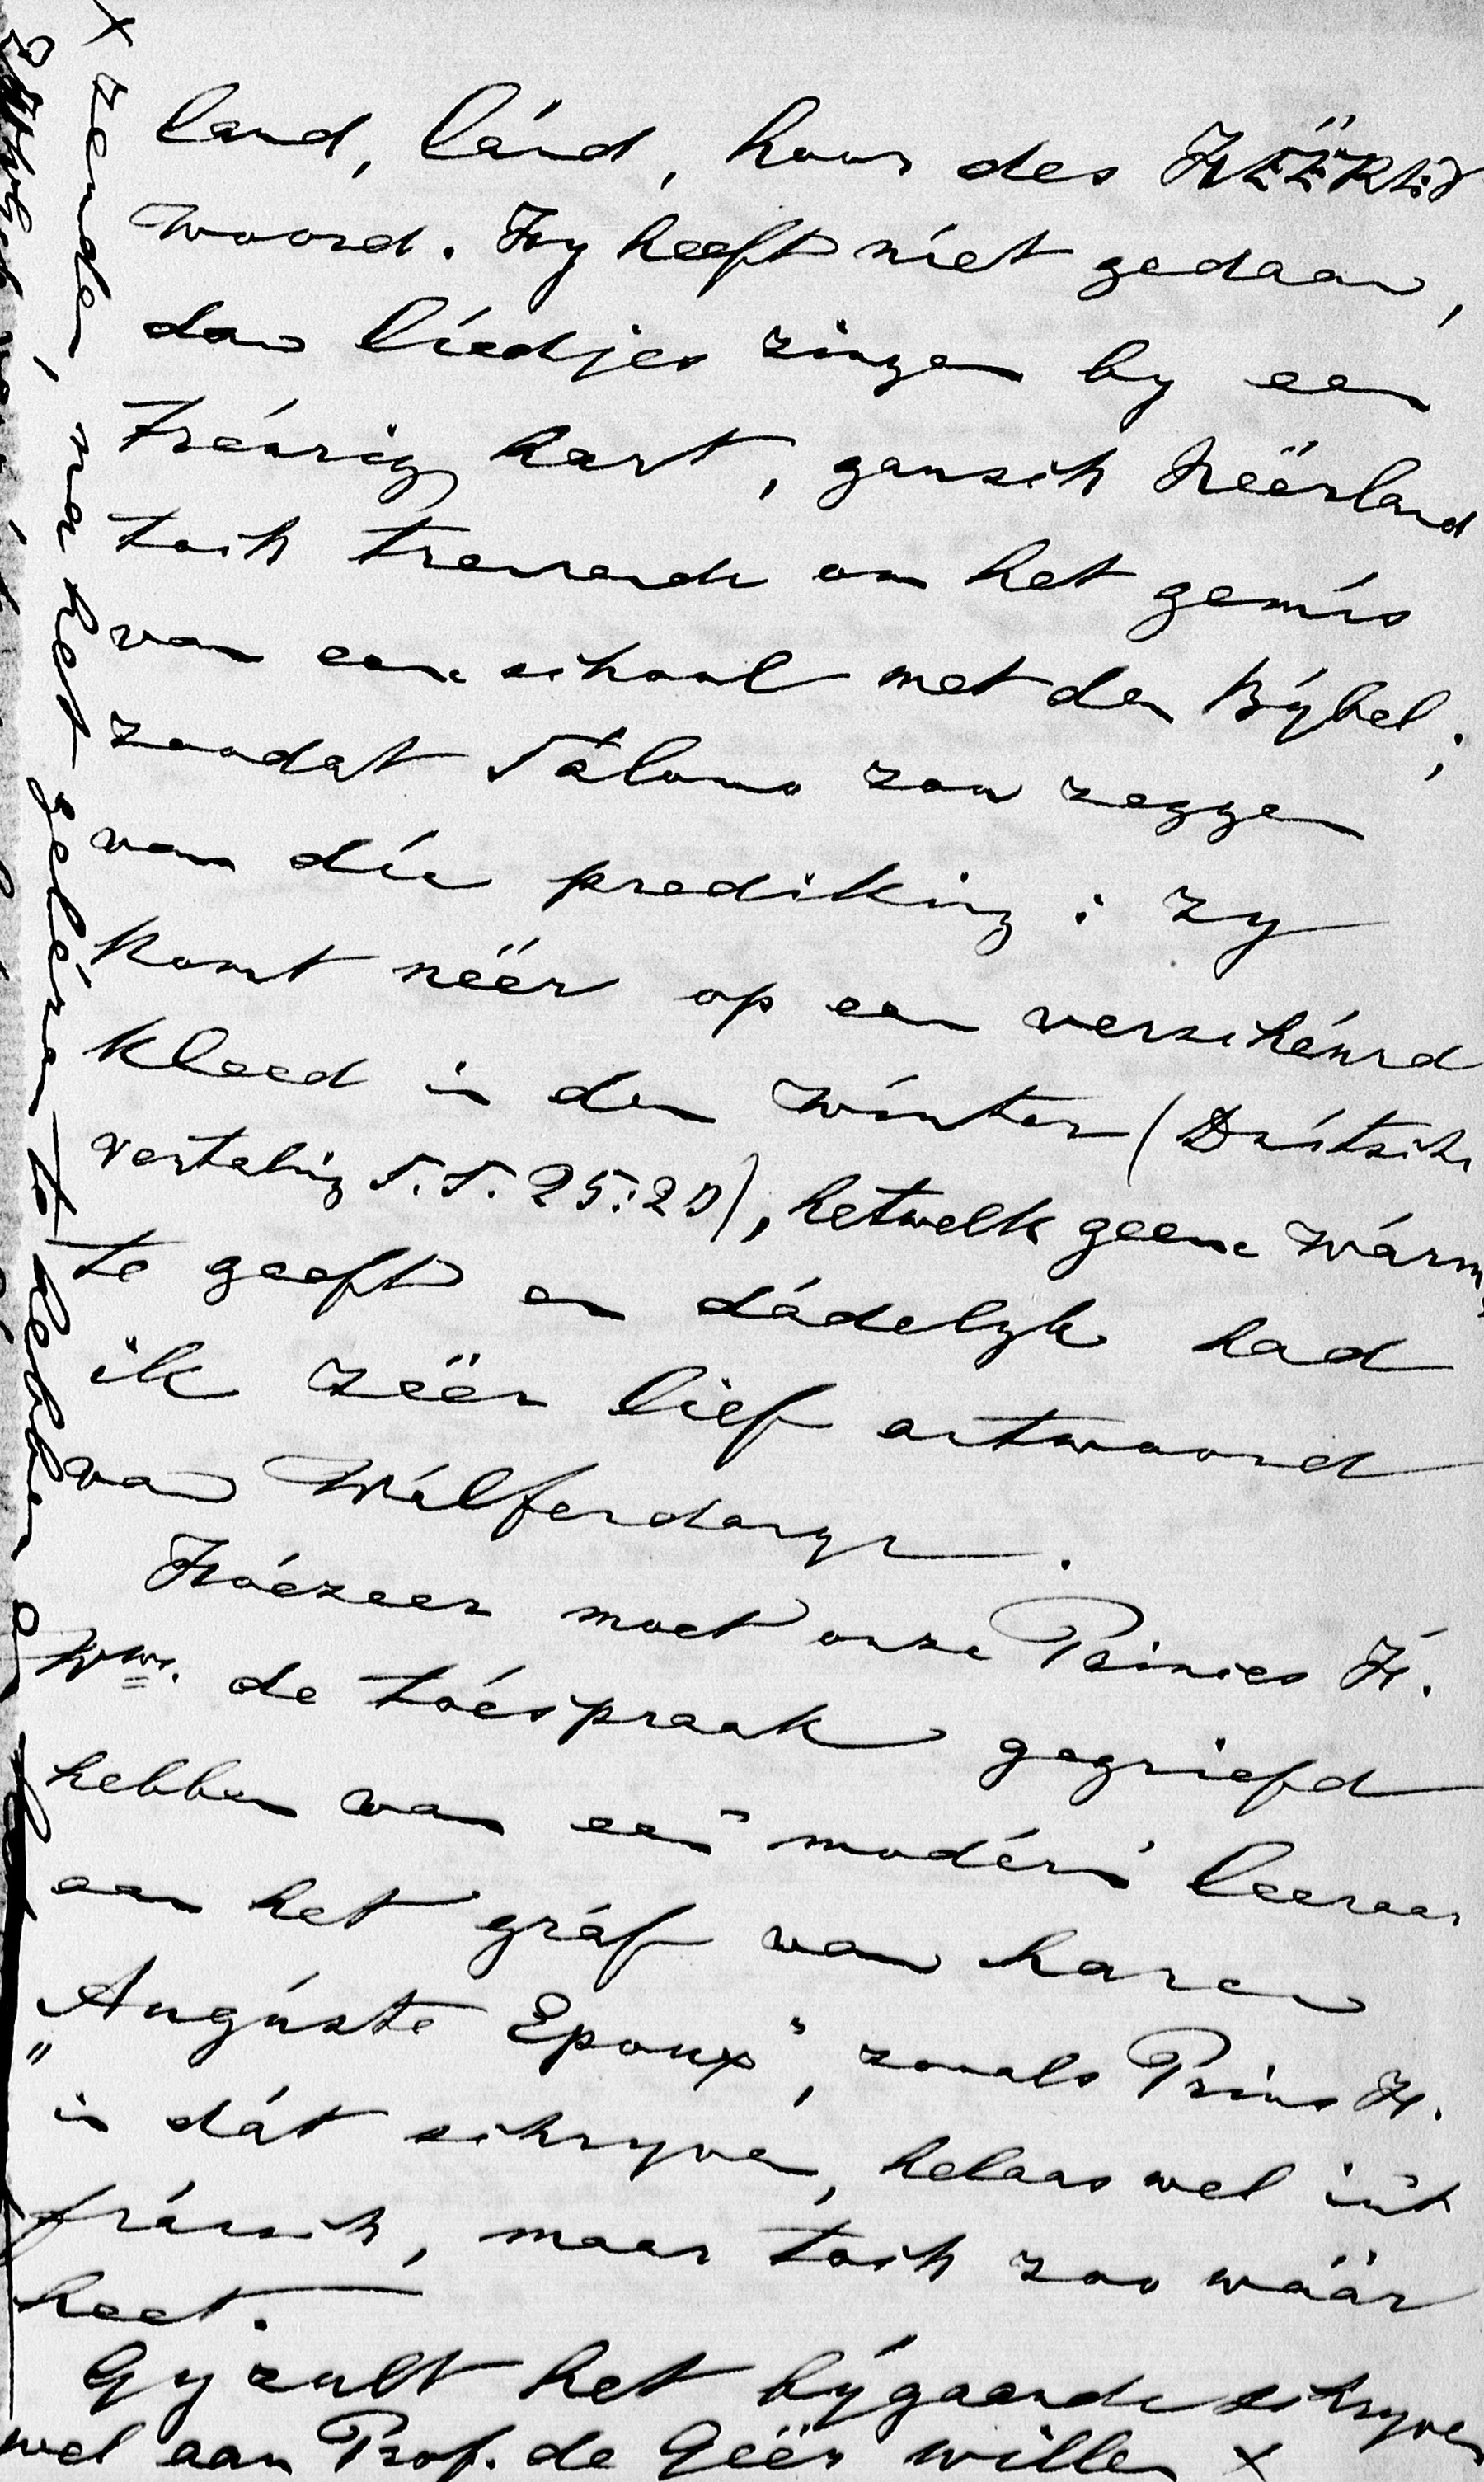 land, lánd, hoor des HËËREN
woord. Hy heeft niet gedaan,
dan liedjes zingen by een
tréurig hart, gansch Nëërland
toch treurende om het gemis
van eene school met den Bÿbel;
zoodat Sálomo zou zeggen
van die prediking: zy
komt nëër op een verschéurd
kleed in den winter (Duitsche
vertaling S.S. 25:20), hetwelk geene wárm
te geeft en dádelyk had
ik zëër lief antwoord
van Walferdange.
Hoezeer moet onze Prinses H.
Wwe. de toéspraak gegriefd
hebben van een "modérn" leeraar
aan het gráf van haren
"Augúste Epoux", zooals Prins H.
in dát schryven, helaas wel in't
fránsch, maar toch zoo wäär
heet.
Gy zult het bÿgaande schryven
wel aan Prof. de Gëër willen x
x zenden, na het gelézen te hebben